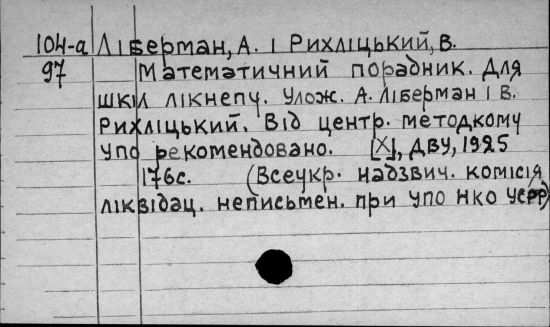 104-а Ліберман, А. і Рихліцький, В.
97 Математичний порадник. Для
шкіл лікнепу. Улож. А. Ліберман і В.
Рихліцький. Від центр. методкому
упо рекомендовано. [Х], ДВУ, 1925
176с. (Всеукр. надзвич. комісія
ліквідац. неписьмен. при упо нко усрр)